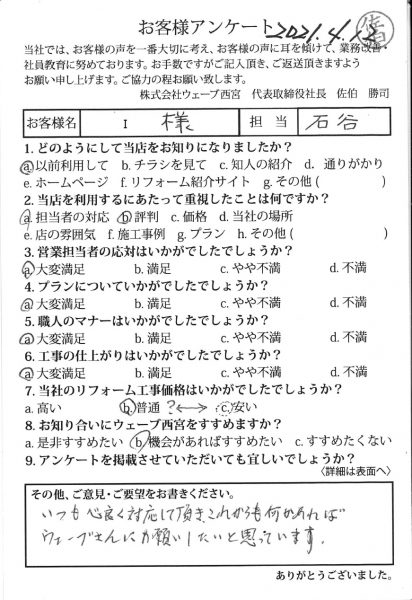 お客様アンケート 2021.4.12
当社では、お客様の声を一番大切に考え、お客様の声に耳を傾けて、業務改善・
社員教育に努めております。お手数ですがご記入頂き、ご返送頂きますよう
お願い申し上げます。ご協力の程お願い致します。
株式会社ウェーブ西宮 代表取締役社長 佐伯 勝司
お客様名 I 様 担当 石谷
1. どのようにして当店をお知りになりましたか?
a.以前利用して b.チラシを見て c.知人の紹介 d. 通りがかり
e.ホームページ f.リフォーム紹介サイト g.その他( )
2. 当店を利用するにあたって重視したことは何ですか?
a.担当者の対応 b.評判 c.価格 d.当社の場所
e.店の雰囲気 f.施工事例 g.プラン h.その他( )
3. 営業担当者の応対はいかがでしたでしょうか?
a.大変満足 b.満足 c.やや不満 d.不満
4. プランについていかがでしたでしょうか?
a.大変満足 b.満足 c.やや不満 d.不満
5. 職人のマナーはいかがでしたでしょうか?
a.大変満足 b.満足 c.やや不満 d.不満
6. 工事の仕上がりはいかがでしたでしょうか?
a.大変満足 b.満足 c.やや不満 d.不満
7. 当社のリフォーム工事価格はいかがでしたでしょうか?
a.高い b.普通 ?←→ c.安い
8. お知り合いにウェーブ西宮をすすめますか?
a.是非すすめたい b.機会があればすすめたい c.すすめたくない
9. アンケートを掲載させていただいても宜しいでしょうか?
〈詳細は表面へ〉
その他、ご意見・ご要望をお書きください。
いつも心良く対応して頂き、これからも何かあれば
ウェーブさんにお願いしたいと思っています。
ありがとうございました。